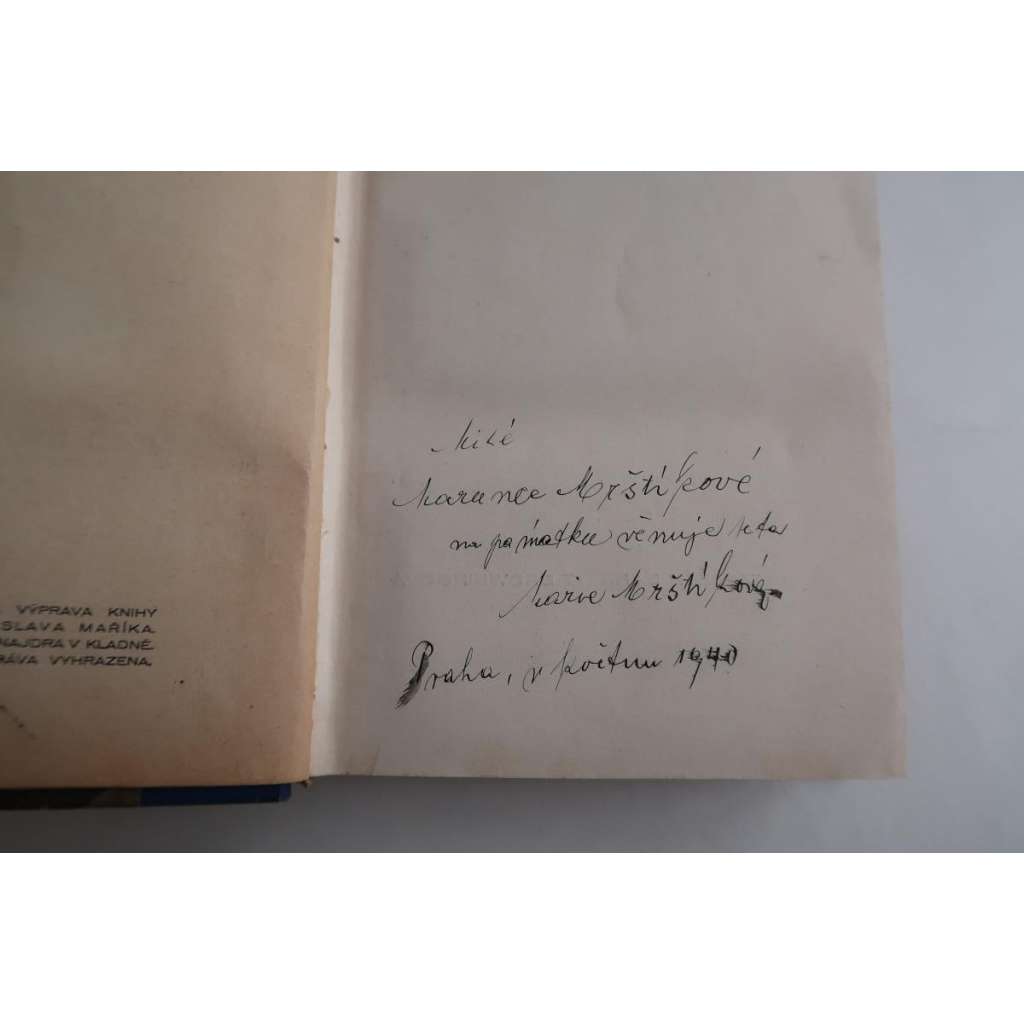 VÝPRAVA KNIHY
SLAVA MAŘÍKA.
NAJDRA V KLADNĚ.
RÁVA VYHRAZENA.
Milé
Marunce Mrštíkové
na památku věnuje teta
Marie Mrštíková
Praha, v květnu 1940